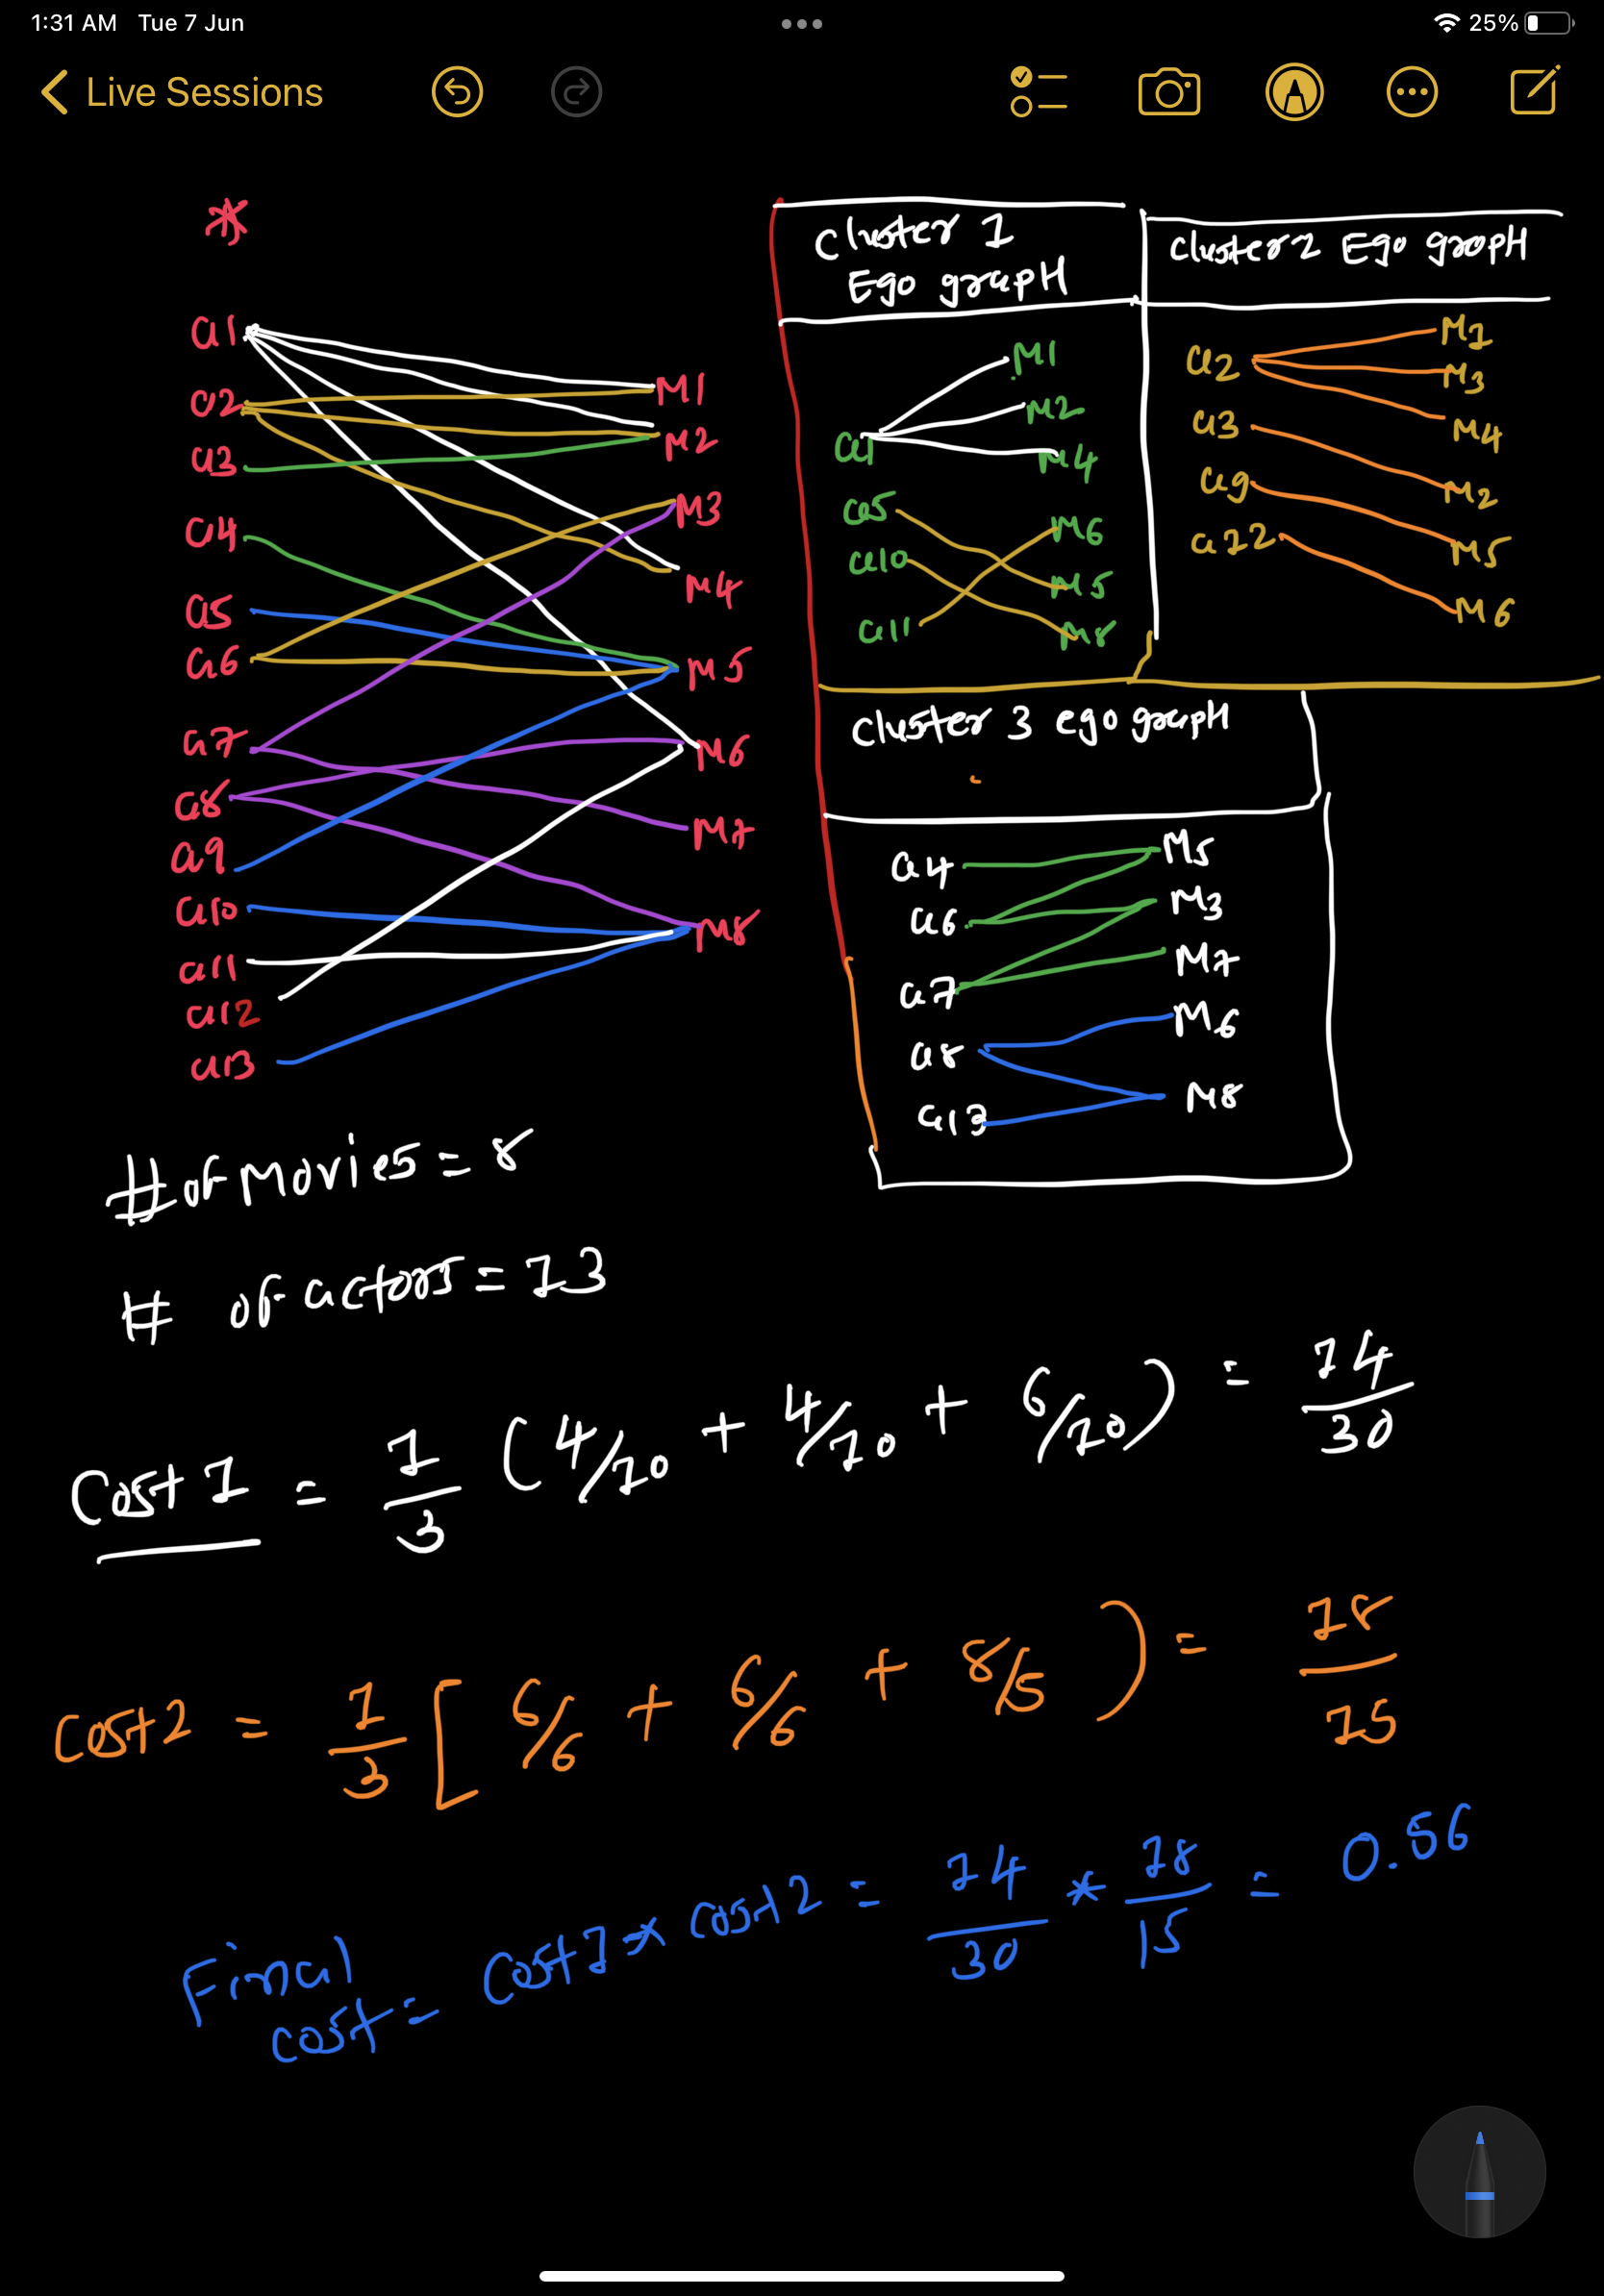 1:31 AM Tue 7 Jun
25%
Live Sessions
*
a1
a2
a3
a4
a5
a6
a7
a8
a9
a10
a11
a12
a13
M1
M2
M3
M4
M5
M6
M7
M8
Cluster 1
Ego grapH
a1
a5
a10
a11
M1
M2
M4
M6
M5
M8
Cluster 2 Ego grapH
a2
a3
a9
a12
M1
M3
M4
M2
M5
M6
Cluster 3 ego grapH
a4 M5
a6 M3
a7 M7
a8 M6
a13 M8
# of Movies = 8
# of actors = 13
Cost 1 = 1/3 (4/10 + 4/10 + 6/10) = 14/30
Cost 2 = 1/3 [ 6/6 + 6/6 + 8/5 ) = 18/15
Final cost = cost 1 * cost 2 = 14/30 * 18/15 = 0.56